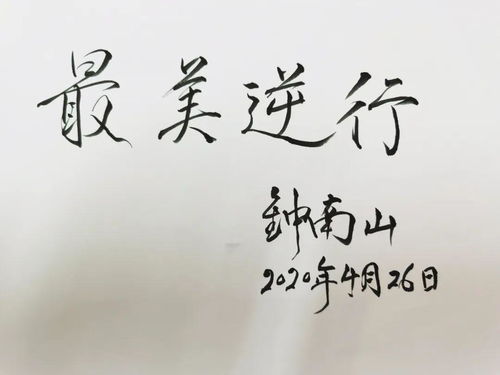 最美逆行
鈡南山
2020年4月26日